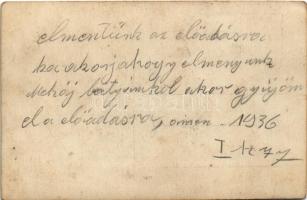 elmentünk az előadásra
ha akarja hogy elmenyünk
bátyámtól akor gyüjön
el a előadásra, 1936
I